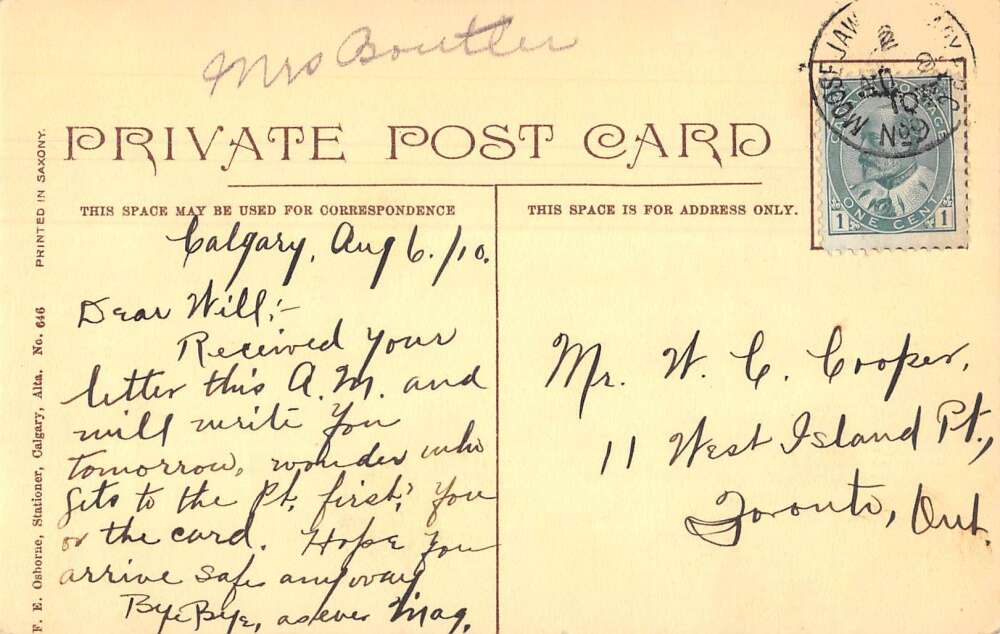 Mrs Boutler
PRIVATE POST CARD
THIS SPACE MAY BE USED FOR CORRESPONDENCE
THIS SPACE IS FOR ADDRESS ONLY.
Calgary, Aug 6./10.
Dear Will;-
Received your
letter this A.M. and
will write you
tomorrow, wonder who
gets to the Pt. first? You
or the card. Hope you
arrive safe anyway
Bye Bye, as ever Mag.
Mr. W. C. Cooper,
11 West Island Pt.,
Toronto, Ont.
MOOSE JAW
10
ONE CENT
1 1
PRINTED IN SAXONY.
F. E. Osborne, Stationer, Calgary, Alta. No. 646